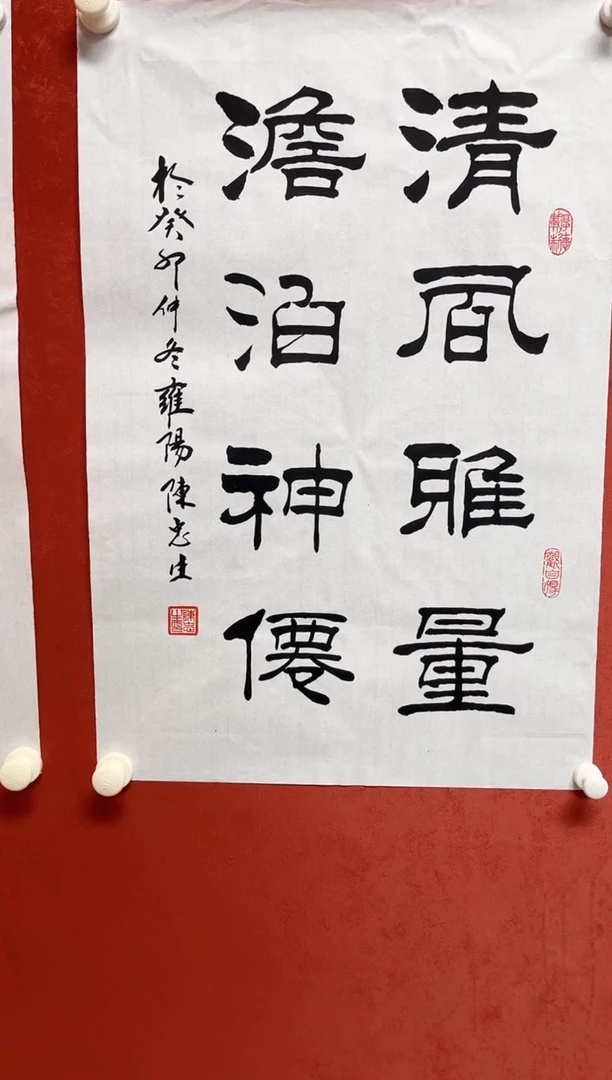 清風雅量
澹泊神僊
於癸卯仲冬雍陽陳忠生